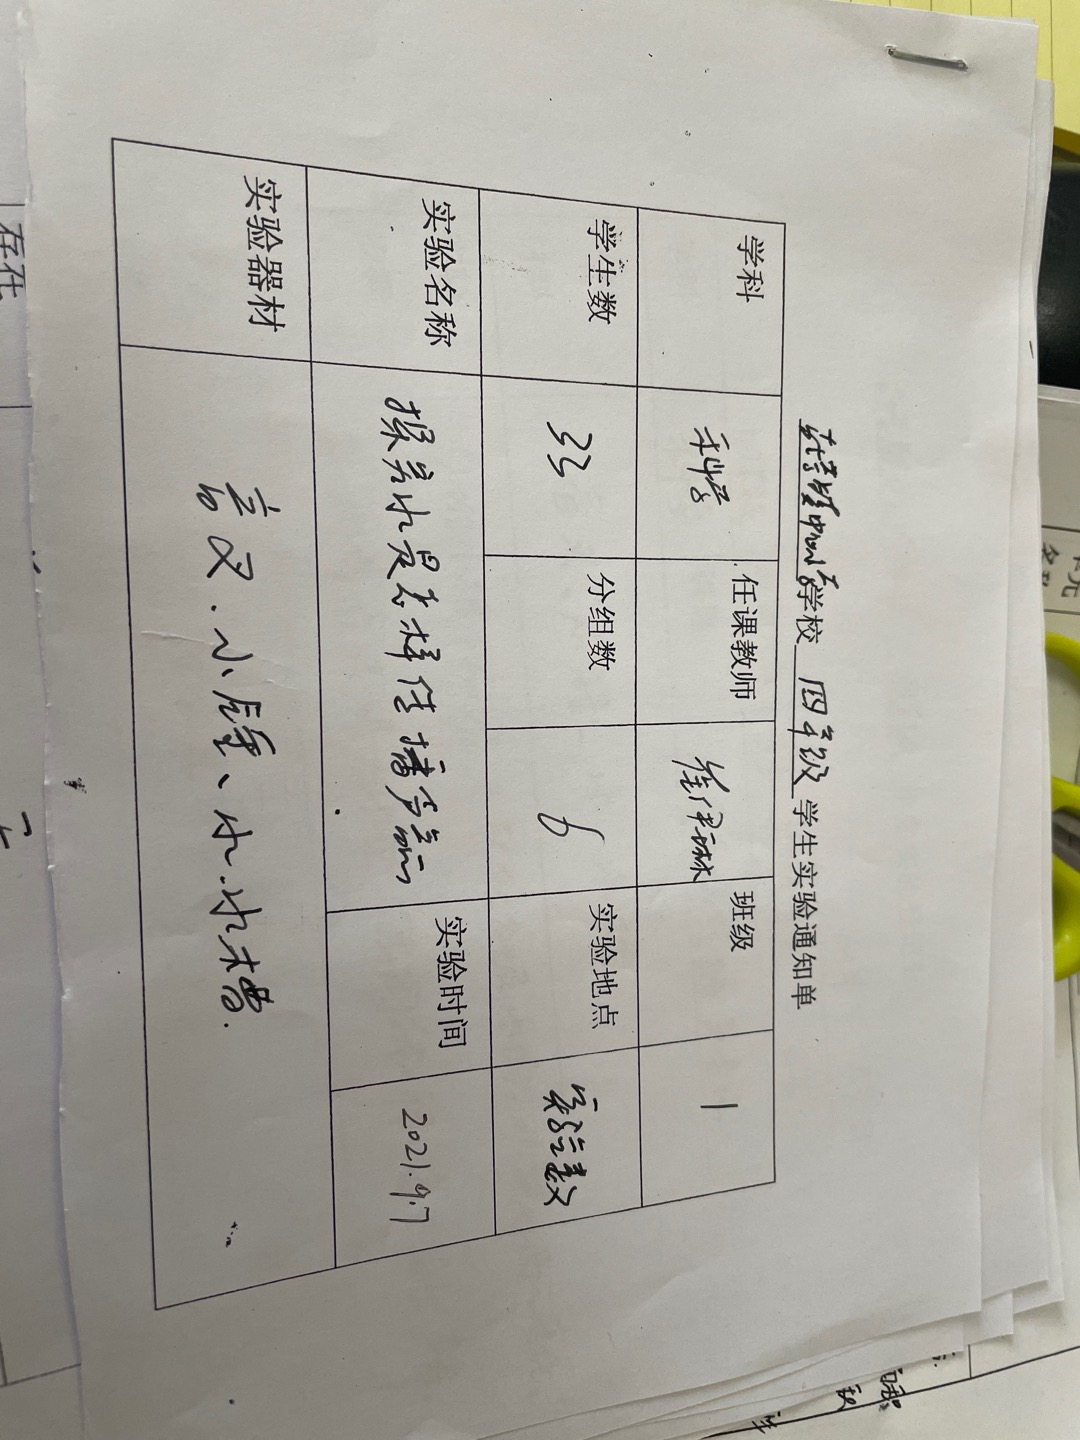 学校 四年级 学生实验通知单
学科 科学 任课教师 班级 1
学生数 33 分组数 6 实验地点
实验名称 探究水是怎样传播声音 实验时间 2021.9.7
实验器材 音叉.小锤、水.水槽.